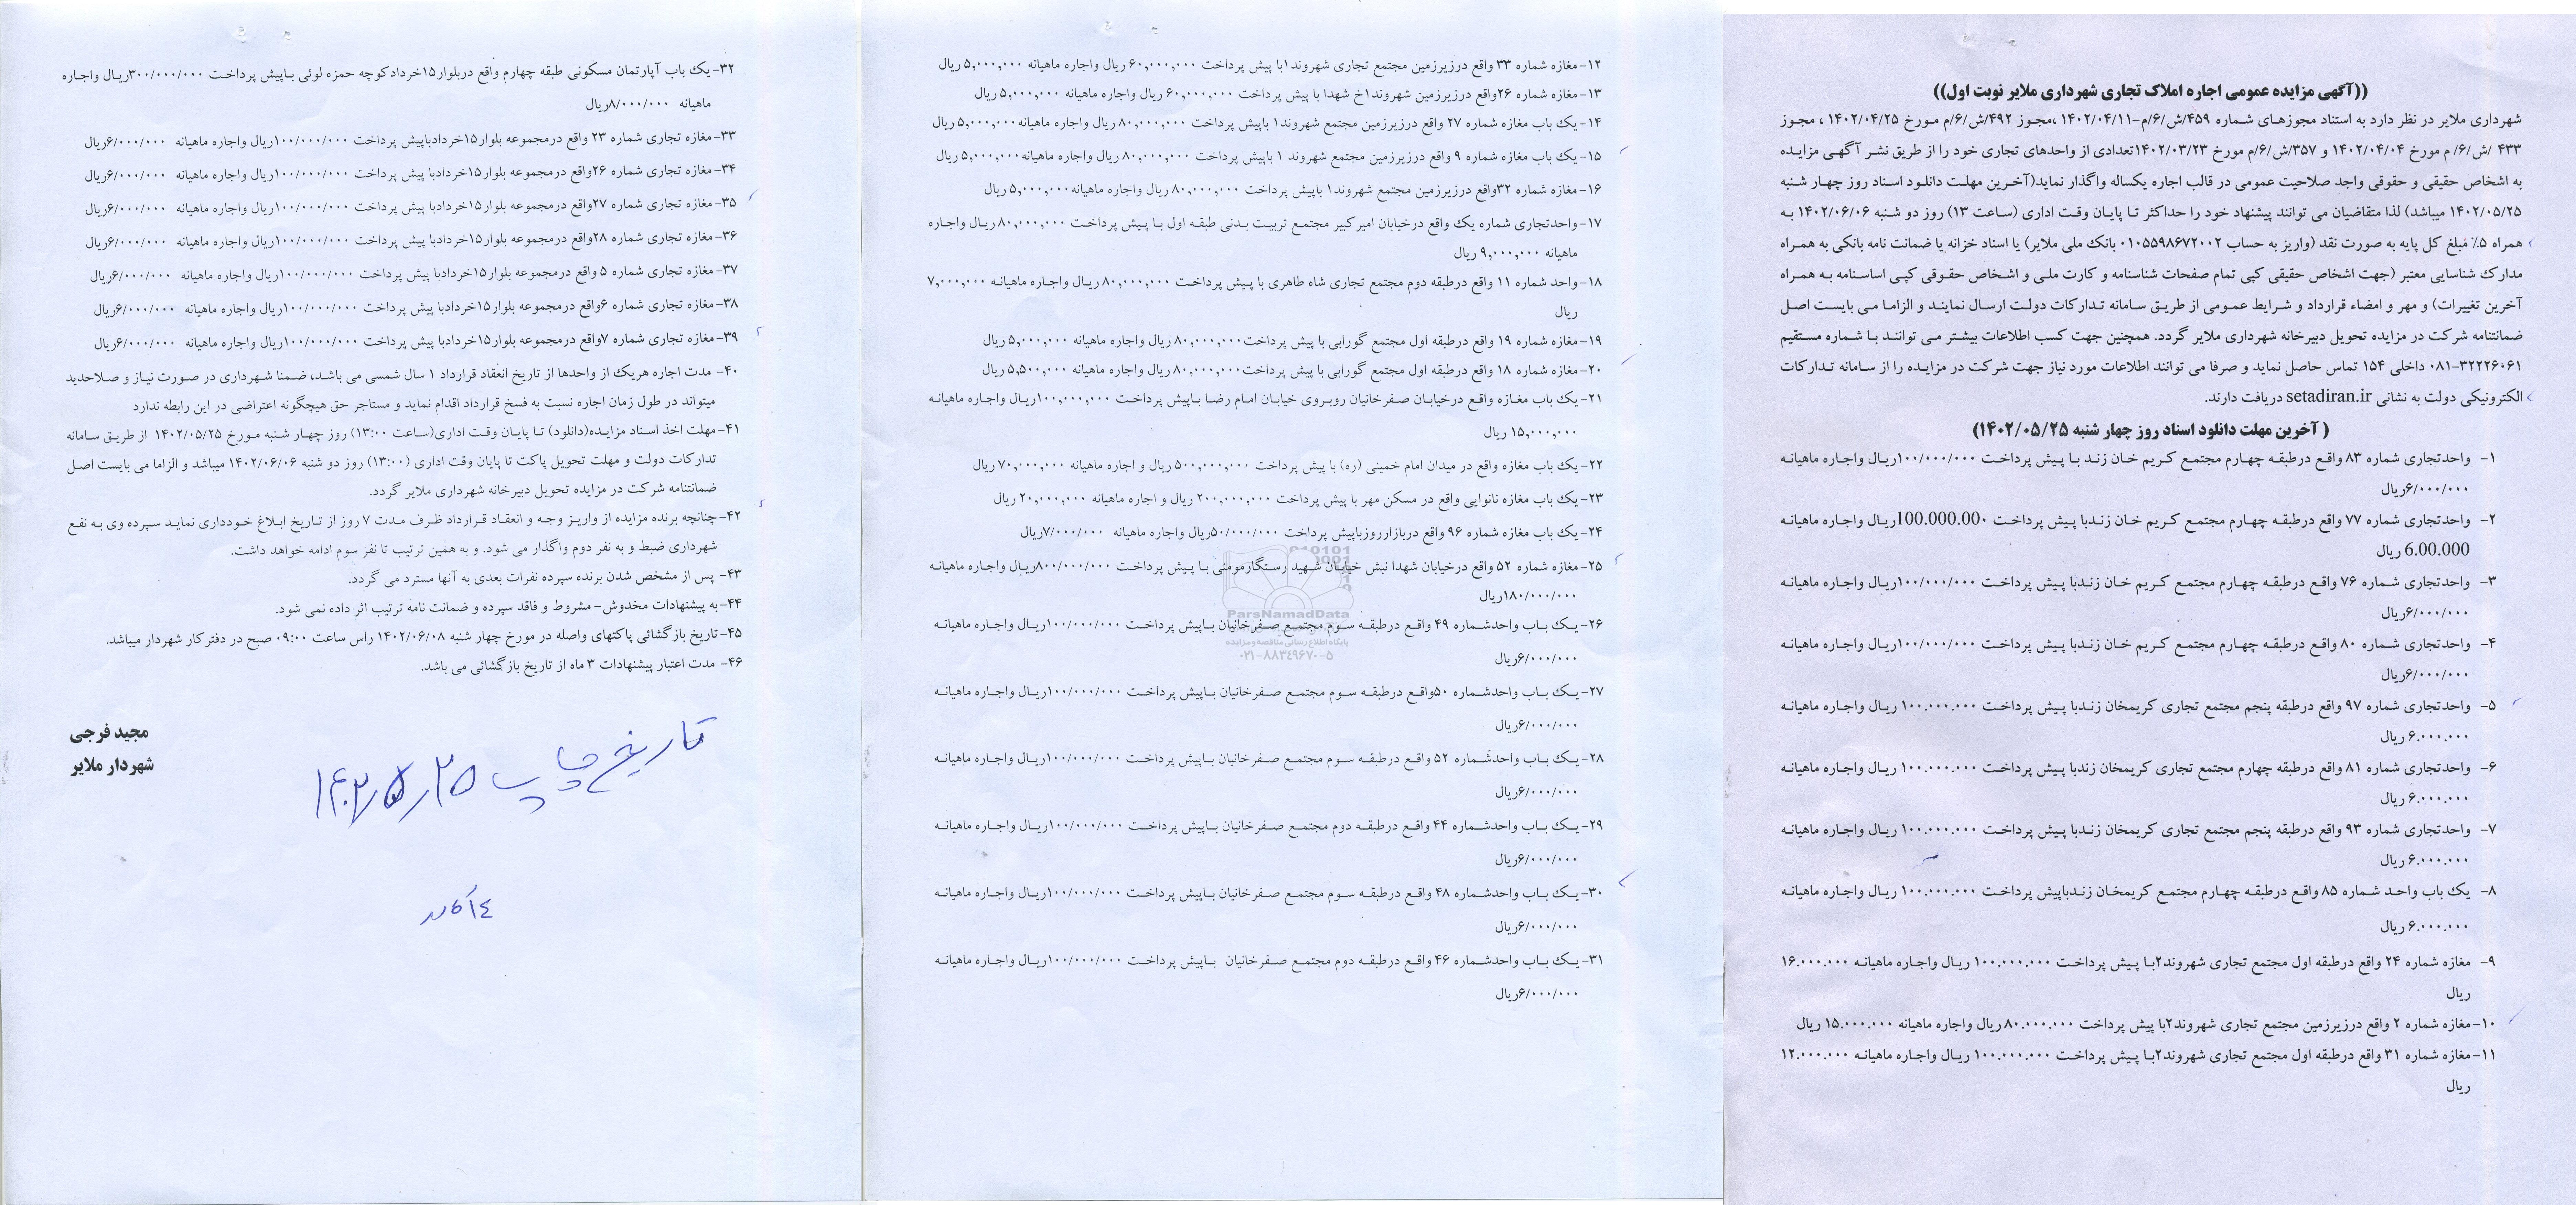 ((آگهی مزایده عمومی اجاره املاک تجاری شهرداری ملایر نوبت اول))
شهرداری ملایر در نظر دارد به استناد مجوزهـای شـماره ۴۵۹/ش/۶/م-۱۴۰۲/۰۴/۱۱ ،مجـوز ۴۹۲/ش/۶/م مـورخ ۱۴۰۲/۰۴/۲۵ ، مجـوز
۴۳۳ /ش/۶/ م مورخ ۱۴۰۲/۰۴/۰۴ و ۳۵۷/ش/۶/م مورخ ۱۴۰۲/۰۳/۲۳تعدادی از واحدهای تجاری خود را از طریق نشـر آگهـی مزایـده
به اشخاص حقیقی و حقوقی واجد صلاحیت عمومی در قالب اجاره یکساله واگذار نماید(آخـرین مهلـت دانلـود اسـناد روز چهـار شـنبه
۱۴۰۲/۰۵/۲۵ میباشد) لذا متقاضیان می توانند پیشنهاد خود را حداکثر تـا پایـان وقـت اداری (سـاعت ۱۳) روز دو شـنبه ۱۴۰۲/۰۶/۰۶ بـه
همراه ۵٪ مبلغ کل پایه به صورت نقد (واریز به حساب ۰۱۰۵۵۹۸۶۷۲۰۰۲ بانک ملی ملایر) یا اسناد خزانه یا ضمانت نامه بانکی به همـراه
مدارک شناسایی معتبر (جهت اشخاص حقیقی کپی تمام صفحات شناسنامه و کارت ملـی و اشـخاص حقـوقی کپـی اساسـنامه بـه همـراه
آخرین تغییرات) و مهر و امضاء قرارداد و شرایط عمـومی از طریـق سـامانه تـدارکات دولـت ارسـال نماینـد و الزامـا مـی بایسـت اصـل
ضمانتنامه شرکت در مزایده تحویل دبیرخانه شهرداری ملایر گردد. همچنین جهت کسب اطلاعات بیشـتر مـی تواننـد بـا شـماره مسـتقیم
۰۸۱-۳۲۲۲۶۰۶۱ داخلی ۱۵۴ تماس حاصل نماید و صرفا می توانند اطلاعات مورد نیاز جهت شرکت در مزایـده را از سـامانه تـدارکات
الکترونیکی دولت به نشانی setadiran.ir دریافت دارند.
( آخرین مهلت دانلود اسناد روز چهار شنبه ۱۴۰۲/۰۵/۲۵)
۱- واحدتجاری شماره ۸۳ واقـع درطبقـه چهـارم مجتمـع کـریم خـان زنـد بـا پـیش پرداخـت ۱۰۰/۰۰۰/۰۰۰ریـال واجـاره ماهیانـه
۶/۰۰۰/۰۰۰ریال
۲- واحدتجاری شماره ۷۷ واقع درطبقـه چهـارم مجتمـع کـریم خـان زنـدبا پـیش پرداخـت 100.000.00۰ریـال واجـاره ماهیانـه
6.00.000 ریال
۳- واحدتجاری شـماره ۷۶ واقـع درطبقـه چهـارم مجتمـع کـریم خـان زنـدبا پـیش پرداخـت ۱۰۰/۰۰۰/۰۰۰ریـال واجـاره ماهیانـه
۶/۰۰۰/۰۰۰ریال
۴- واحدتجاری شـماره ۸۰ واقـع درطبقـه چهـارم مجتمـع کـریم خـان زنـدبا پـیش پرداخـت ۱۰۰/۰۰۰/۰۰۰ریـال واجـاره ماهیانـه
۶/۰۰۰/۰۰۰ریال
۵- واحدتجاری شماره ۹۷ واقع درطبقه پنجم مجتمع تجاری کریمخان زنـدبا پـیش پرداخـت ۱۰۰.۰۰۰.۰۰۰ ریـال واجـاره ماهیانـه
۶.۰۰۰.۰۰۰ ریال
۶- واحدتجاری شماره ۸۱ واقع درطبقه چهارم مجتمع تجاری کریمخان زنـدبا پـیش پرداخـت ۱۰۰.۰۰۰.۰۰۰ ریـال واجـاره ماهیانـه
۶.۰۰۰.۰۰۰ ریال
۷- واحدتجاری شماره ۹۳ واقع درطبقه پنجم مجتمع تجاری کریمخان زنـدبا پـیش پرداخـت ۱۰۰.۰۰۰.۰۰۰ ریـال واجـاره ماهیانـه
۶.۰۰۰.۰۰۰ ریال
۸- یک باب واحـد شـماره ۸۵ واقـع درطبقـه چهـارم مجتمـع کریمخـان زنـدباپیش پرداخـت ۱۰۰.۰۰۰.۰۰۰ ریـال واجـاره ماهیانـه
۶.۰۰۰.۰۰۰ ریال
۹- مغازه شماره ۲۴ واقع درطبقه اول مجتمع تجاری شهروند۲بـا پـیش پرداخـت ۱۰۰.۰۰۰.۰۰۰ ریـال واجـاره ماهیانـه ۱۶.۰۰۰.۰۰۰
ریال
۱۰-مغازه شماره ۲ واقع درزیرزمین مجتمع تجاری شهروند۲با پیش پرداخت ۸۰.۰۰۰.۰۰۰ ریال واجاره ماهیانه ۱۵.۰۰۰.۰۰۰ ریال
۱۱-مغازه شماره ۳۱ واقع درطبقه اول مجتمع تجاری شهروند۲بـا پـیش پرداخـت ۱۰۰.۰۰۰.۰۰۰ ریـال واجـاره ماهیانـه ۱۲.۰۰۰.۰۰۰
ریال
۱۲-مغازه شماره ۳۳ واقع درزیرزمین مجتمع تجاری شهروند۱با پیش پرداخت ۶۰,۰۰۰,۰۰۰ ریال واجاره ماهیانه ۵,۰۰۰,۰۰۰ ریال
۱۳-مغازه شماره ۲۶واقع درزیرزمین شهروند۱خ شهدا با پیش پرداخت ۶۰,۰۰۰,۰۰۰ ریال واجاره ماهیانه ۵,۰۰۰,۰۰۰ ریال
۱۴-یک باب مغازه شماره ۲۷ واقع درزیرزمین مجتمع شهروند۱ باپیش پرداخت ۸۰,۰۰۰,۰۰۰ ریال واجاره ماهیانه۵,۰۰۰,۰۰۰ ریال
۱۵-یک باب مغازه شماره ۹ واقع درزیرزمین مجتمع شهروند ۱ باپیش پرداخت ۸۰,۰۰۰,۰۰۰ ریال واجاره ماهیانه۵,۰۰۰,۰۰۰ ریال
۱۶-مغازه شماره ۳۲واقع درزیرزمین مجتمع شهروند۱ باپیش پرداخت ۸۰,۰۰۰,۰۰۰ ریال واجاره ماهیانه۵,۰۰۰,۰۰۰ ریال
۱۷-واحدتجاری شماره یک واقع درخیابان امیرکبیر مجتمـع تربیـت بـدنی طبقـه اول بـا پـیش پرداخـت ۸۰,۰۰۰,۰۰۰ ریـال واجـاره
ماهیانه ۹,۰۰۰,۰۰۰ ریال
۱۸-واحد شماره ۱۱ واقع درطبقه دوم مجتمع تجاری شاه طاهری با پـیش پرداخـت ۸۰,۰۰۰,۰۰۰ ریـال واجـاره ماهیانـه ۷,۰۰۰,۰۰۰
ریال
۱۹-مغازه شماره ۱۹ واقع درطبقه اول مجتمع گورابی با پیش پرداخت۸۰,۰۰۰,۰۰۰ ریال واجاره ماهیانه ۵,۰۰۰,۰۰۰ ریال
۲۰-مغازه شماره ۱۸ واقع درطبقه اول مجتمع گورابی با پیش پرداخت۸۰,۰۰۰,۰۰۰ ریال واجاره ماهیانه ۵,۵۰۰,۰۰۰ ریال
۲۱-یک باب مغـازه واقـع درخیابـان صـفرخانیان روبـروی خیابـان امـام رضـا بـاپیش پرداخـت ۱۰۰,۰۰۰,۰۰۰ریـال واجـاره ماهیانـه
۱۵,۰۰۰,۰۰۰ ریال
۲۲-یک باب مغازه واقع در میدان امام خمینی (ره) با پیش پرداخت ۵۰۰,۰۰۰,۰۰۰ ریال و اجاره ماهیانه ۷۰,۰۰۰,۰۰۰ ریال
۲۳-یک باب مغازه نانوایی واقع در مسکن مهر با پیش پرداخت ۲۰۰,۰۰۰,۰۰۰ ریال و اجاره ماهیانه ۲۰,۰۰۰,۰۰۰ ریال
۲۴-یک باب مغازه شماره ۹۶ واقع دربازارروزباپیش پرداخت ۵۰/۰۰۰/۰۰۰ریال واجاره ماهیانه ۷/۰۰۰/۰۰۰ریال
۲۵-مغازه شماره ۵۲ واقع درخیابان شهدا نبش خیابـان شـهید رسـتگارمومنی بـا پـیش پرداخـت ۸۰۰/۰۰۰/۰۰۰ریـال واجـاره ماهیانـه
۱۸۰/۰۰۰/۰۰۰ریال
۲۶-یـک بـاب واحدشـماره ۴۹ واقـع درطبقـه سـوم مجتمـع صـفرخانیان بـاپیش پرداخـت ۱۰۰/۰۰۰/۰۰۰ریـال واجـاره ماهیانـه
۶/۰۰۰/۰۰۰ریال
۲۷-یـک بـاب واحدشـماره ۵۰واقـع درطبقـه سـوم مجتمـع صـفرخانیان بـاپیش پرداخـت ۱۰۰/۰۰۰/۰۰۰ریـال واجـاره ماهیانـه
۶/۰۰۰/۰۰۰ریال
۲۸-یـک بـاب واحدشـماره ۵۲ واقـع درطبقـه سـوم مجتمـع صـفرخانیان بـاپیش پرداخـت ۱۰۰/۰۰۰/۰۰۰ریـال واجـاره ماهیانـه
۶/۰۰۰/۰۰۰ریال
۲۹-یـک بـاب واحدشـماره ۴۴ واقـع درطبقـه دوم مجتمـع صـفرخانیان بـاپیش پرداخـت ۱۰۰/۰۰۰/۰۰۰ریـال واجـاره ماهیانـه
۶/۰۰۰/۰۰۰ریال
۳۰-یـک بـاب واحدشـماره ۴۸ واقـع درطبقـه سـوم مجتمـع صـفرخانیان بـاپیش پرداخـت ۱۰۰/۰۰۰/۰۰۰ریـال واجـاره ماهیانـه
۶/۰۰۰/۰۰۰ریال
۳۱-یـک بـاب واحدشـماره ۴۶ واقـع درطبقـه دوم مجتمـع صـفرخانیان بـاپیش پرداخـت ۱۰۰/۰۰۰/۰۰۰ریـال واجـاره ماهیانـه
۶/۰۰۰/۰۰۰ریال
ParsNamadData
پایگاه اطلاع رسانی مناقصه و مزایده
۰۲۱-۸۸۳۴۹۶۷۰-۵
۳۲-یک باب آپارتمان مسکونی طبقه چهارم واقع دربلوار۱۵خردادکوچه حمزه لوئی بـاپیش پرداخـت ۳۰۰/۰۰۰/۰۰۰ریـال واجـاره
ماهیانه ۸/۰۰۰/۰۰۰ریال
۳۳-مغازه تجاری شماره ۲۳ واقع درمجموعه بلوار۱۵خردادباپیش پرداخت ۱۰۰/۰۰۰/۰۰۰ریال واجاره ماهیانه ۶/۰۰۰/۰۰۰ریال
۳۴-مغازه تجاری شماره ۲۶واقع درمجموعه بلوار۱۵خردادبا پیش پرداخت ۱۰۰/۰۰۰/۰۰۰ریال واجاره ماهیانه ۶/۰۰۰/۰۰۰ریال
۳۵-مغازه تجاری شماره ۲۷واقع درمجموعه بلوار۱۵خردادبا پیش پرداخت ۱۰۰/۰۰۰/۰۰۰ریال واجاره ماهیانه ۶/۰۰۰/۰۰۰ریال
۳۶-مغازه تجاری شماره ۲۸واقع درمجموعه بلوار۱۵خردادبا پیش پرداخت ۱۰۰/۰۰۰/۰۰۰ریال واجاره ماهیانه ۶/۰۰۰/۰۰۰ریال
۳۷-مغازه تجاری شماره ۵ واقع درمجموعه بلوار۱۵خردادبا پیش پرداخت ۱۰۰/۰۰۰/۰۰۰ریال واجاره ماهیانه ۶/۰۰۰/۰۰۰ریال
۳۸-مغازه تجاری شماره ۶واقع درمجموعه بلوار۱۵خردادبا پیش پرداخت ۱۰۰/۰۰۰/۰۰۰ریال واجاره ماهیانه ۶/۰۰۰/۰۰۰ریال
۳۹-مغازه تجاری شماره ۷واقع درمجموعه بلوار۱۵خردادبا پیش پرداخت ۱۰۰/۰۰۰/۰۰۰ریال واجاره ماهیانه ۶/۰۰۰/۰۰۰ریال
۴۰- مدت اجاره هریک از واحدها از تاریخ انعقاد قرارداد ۱ سال شمسی می باشـد، ضـمنا شـهرداری در صـورت نیـاز و صـلاحدید
میتواند در طول زمان اجاره نسبت به فسخ قرارداد اقدام نماید و مستاجر حق هیچگونه اعتراضی در این رابطه ندارد
۴۱-مهلت اخذ اسـناد مزایـده(دانلود) تـا پایـان وقـت اداری(سـاعت ۱۳:۰۰) روز چهـار شـنبه مـورخ ۱۴۰۲/۰۵/۲۵ از طریـق سـامانه
تدارکات دولت و مهلت تحویل پاکت تا پایان وقت اداری (۱۳:۰۰) روز دو شنبه ۱۴۰۲/۰۶/۰۶ میباشد و الزاما می بایست اصـل
ضمانتنامه شرکت در مزایده تحویل دبیرخانه شهرداری ملایر گردد.
۴۲-چنانچه برنده مزایده از واریـز وجـه و انعقـاد قـرارداد ظـرف مـدت ۷ روز از تـاریخ ابـلاغ خـودداری نمایـد سـپرده وی بـه نفـع
شهرداری ضبط و به نفر دوم واگذار می شود. و به همین ترتیب تا نفر سوم ادامه خواهد داشت.
۴۳- پس از مشخص شدن برنده سپرده نفرات بعدی به آنها مسترد می گردد.
۴۴-به پیشنهادات مخدوش- مشروط و فاقد سپرده و ضمانت نامه ترتیب اثر داده نمی شود.
۴۵-تاریخ بازگشائی پاکتهای واصله در مورخ چهار شنبه ۱۴۰۲/۰۶/۰۸ راس ساعت ۰۹:۰۰ صبح در دفترکار شهردار میباشد.
۴۶- مدت اعتبار پیشنهادات ۳ ماه از تاریخ بازگشائی می باشد.
مجید فرجی
شهردار ملایر
تاریخ چاپ ۱۴۰۲/۵/۲۵